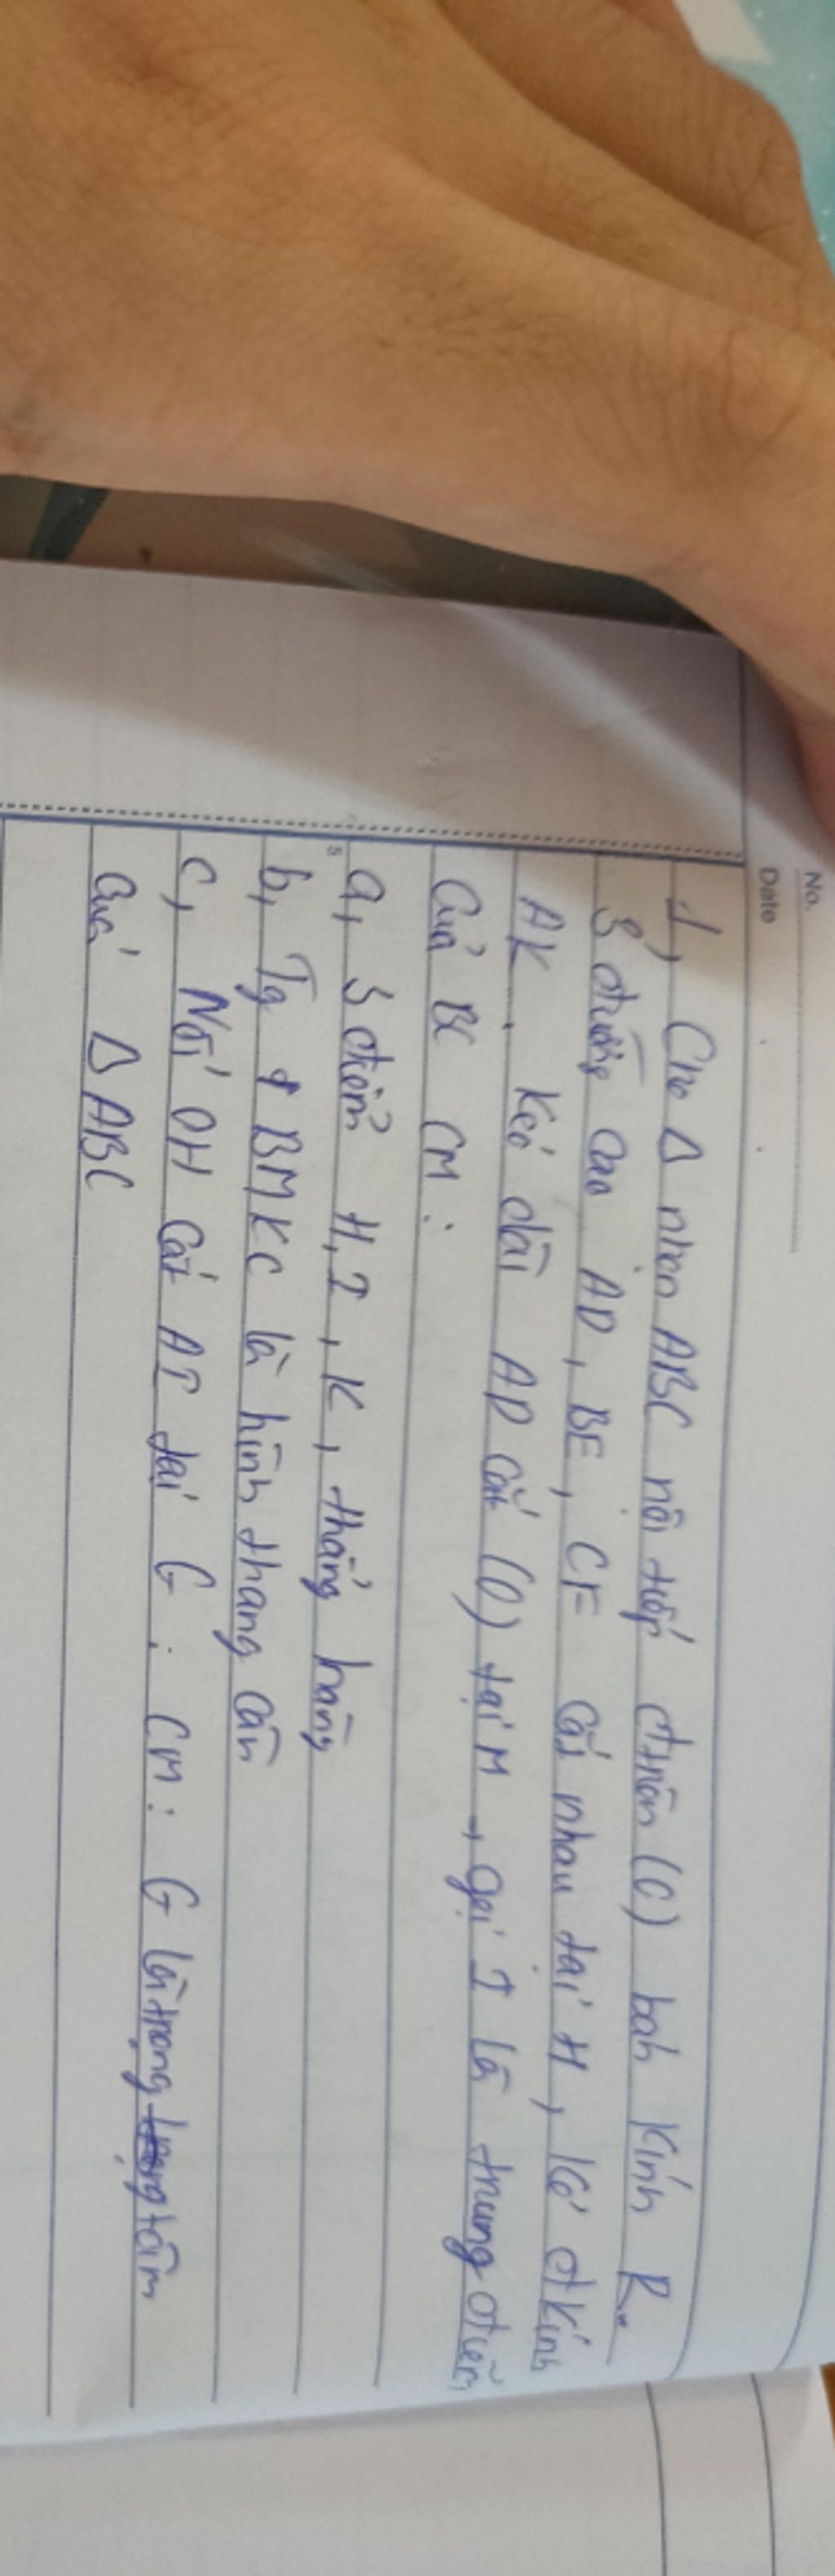 No.
Date
1, Cho Δ nhọn ABC nội tiếp đtròn (O) bán kính R.
3 đường cao AD, BE, CF cắt nhau tại H, kẻ đkính
AK. kéo dài AD cắt (O) tại M, gọi I là trung điểm
của BC CM:
5
a, 3 điểm H, I, K, thẳng hàng
b, Tg BMKC là hình thang cân
c, Nối OH cắt AI tại G. CM: G là trọng tâm
của Δ ABC